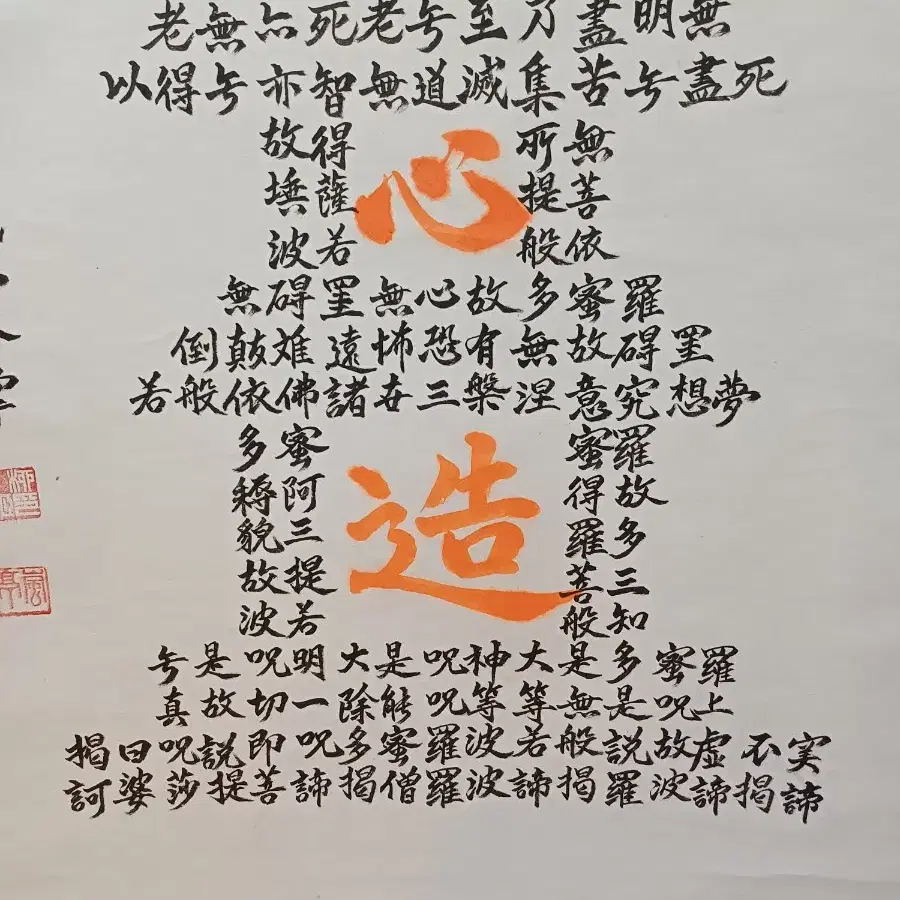 無明盡乃至无老死亦無老
死盡无苦集滅道無智亦无得以
無所得故
菩提薩埵
依般若波
心
羅蜜多故心無罣碍無
罣碍故無有恐怖遠離顛倒
夢想究意涅槃三世諸佛依般若
羅蜜蜜多
故得阿耨
多羅三貌
三菩提故
知般若波
造
羅蜜多是大神呪是大明呪是无
上呪是無等等呪能除一切故真
实不虛故說般若波羅蜜多呪即說呪曰揭
諦揭諦波羅揭諦波羅僧揭諦菩提莎婆訶